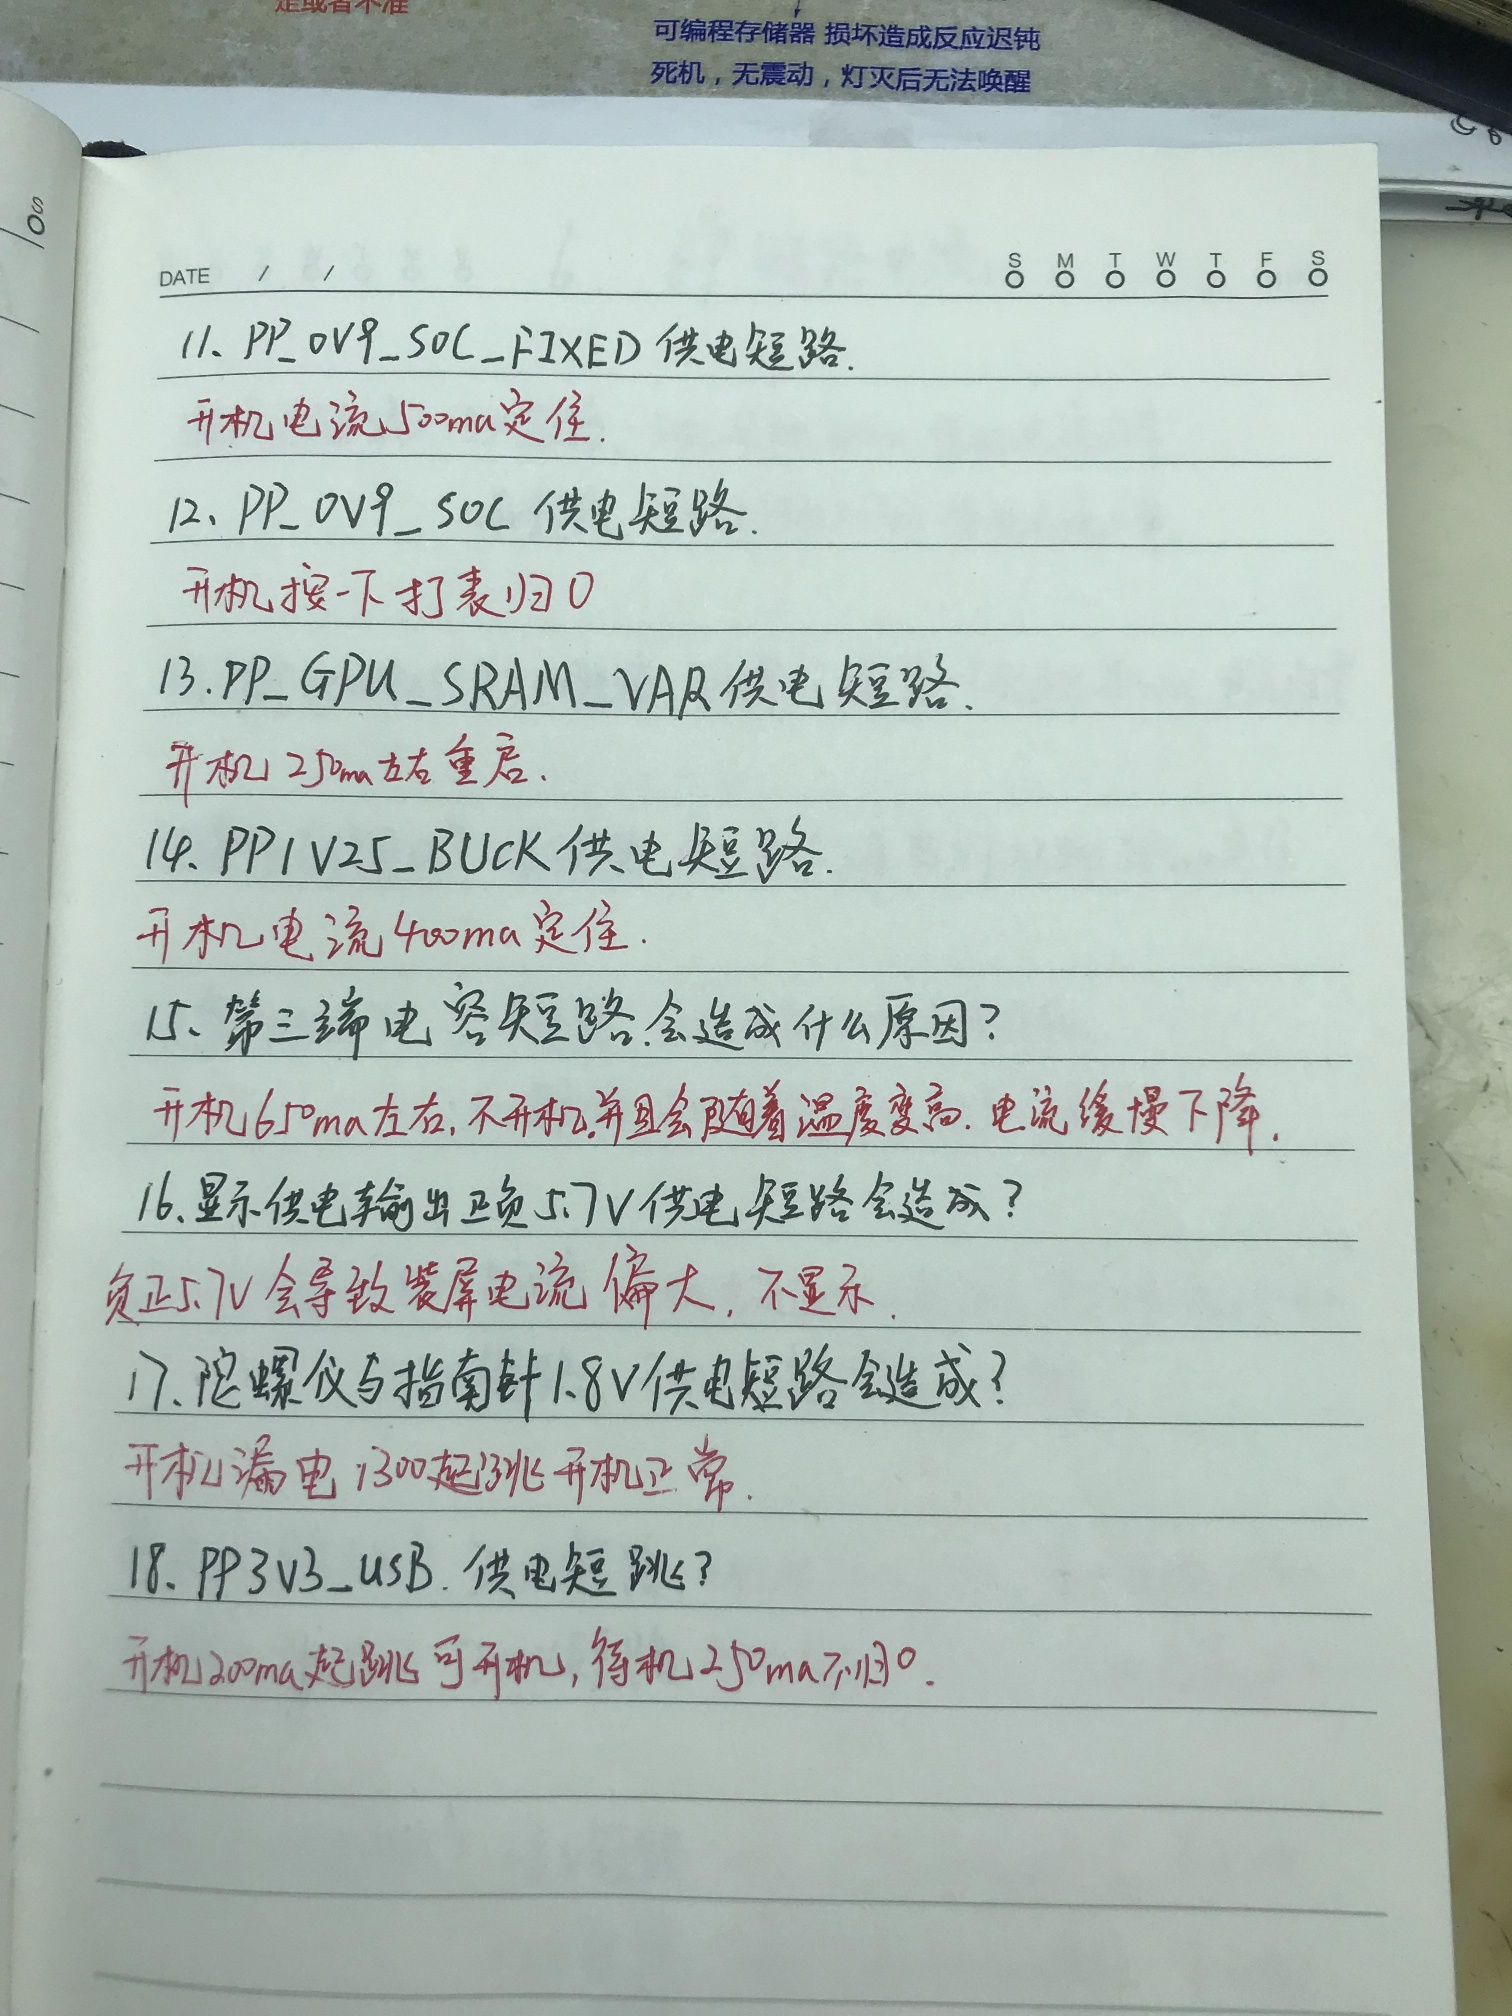 是或者不准
可编程存储器 损坏造成反应迟钝
死机，无震动，灯灭后无法唤醒
S
DATE / /
S M T W T F S
11、PP_0V9_SOC_FIXED 供电短路.
开机电流500ma定住.
12、PP_0V9_SOC 供电短路.
开机按一下打表归0
13.PP_GPU_SRAM_VAR供电短路.
开机250ma左右重启.
14、PP1V25_BUCK供电短路.
开机电流400ma定住.
15、第三端电容短路.会造成什么原因?
开机650ma左右,不开机,并且会随着温度变高.电流缓慢下降.
16、显示供电输出正负5.7V供电短路会造成?
负正5.7V会导致装屏电流偏大,不显示.
17、陀螺仪与指南针1.8V供电短路会造成?
开机漏电,300起跳开机正常.
18、PP3V3_USB.供电短跳?
开机200ma起跳可开机,待机250ma不归0.